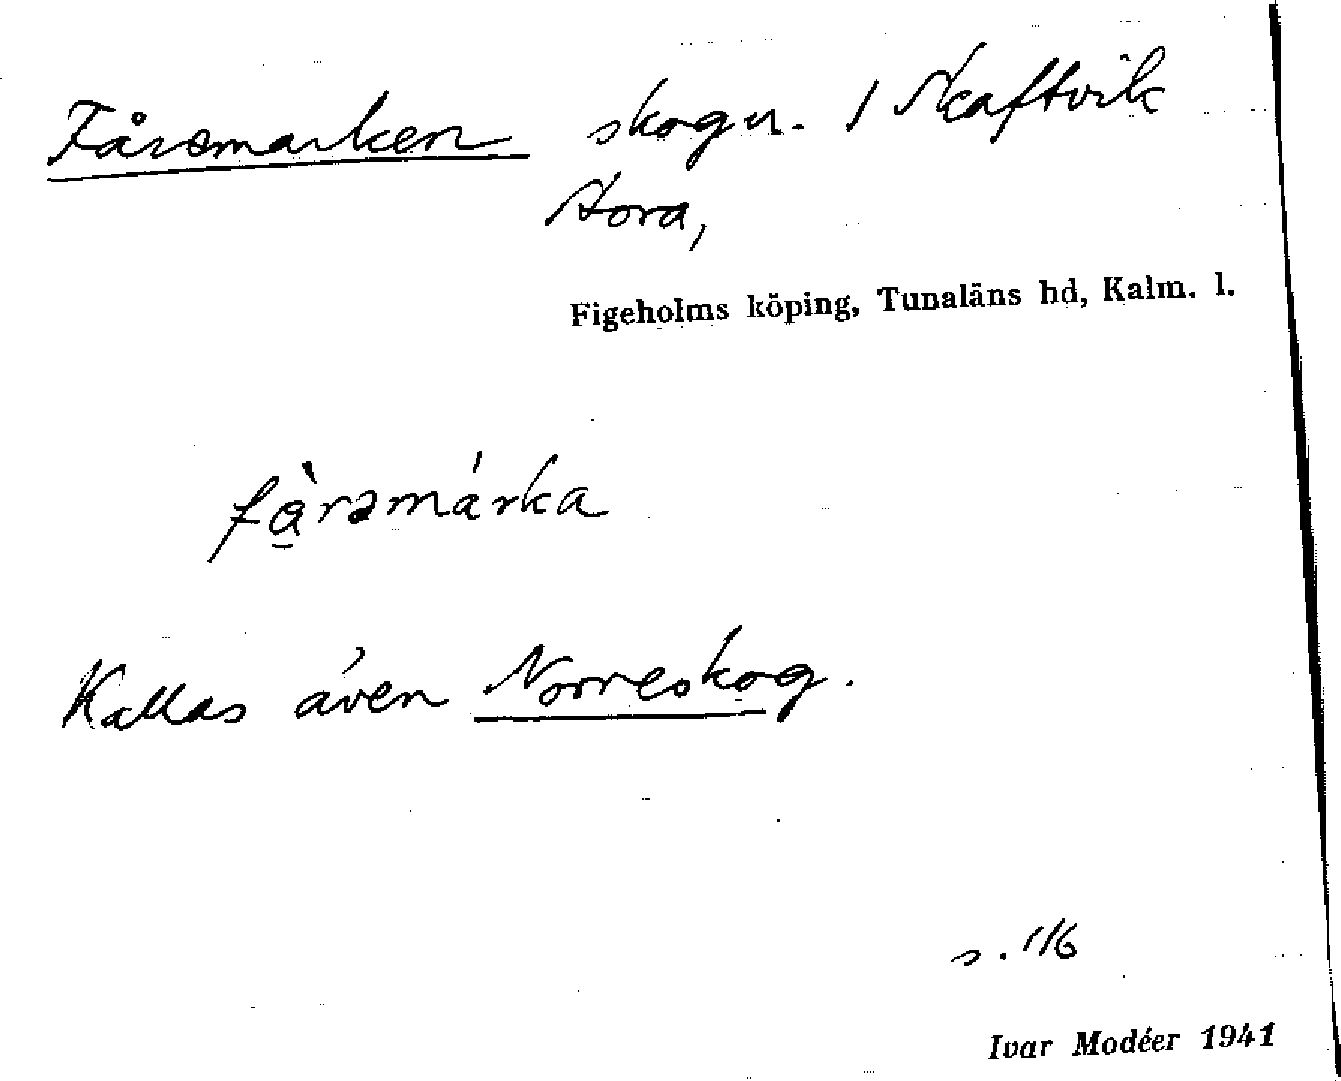 Fåremarken skogu. 1 Skaftvik
Stora,
Figeholms köping, Tunaläns hd, Kalm. l.
fàrəmárka
Kallas även Norreskog.
s. 116
Ivar Modéer 1941